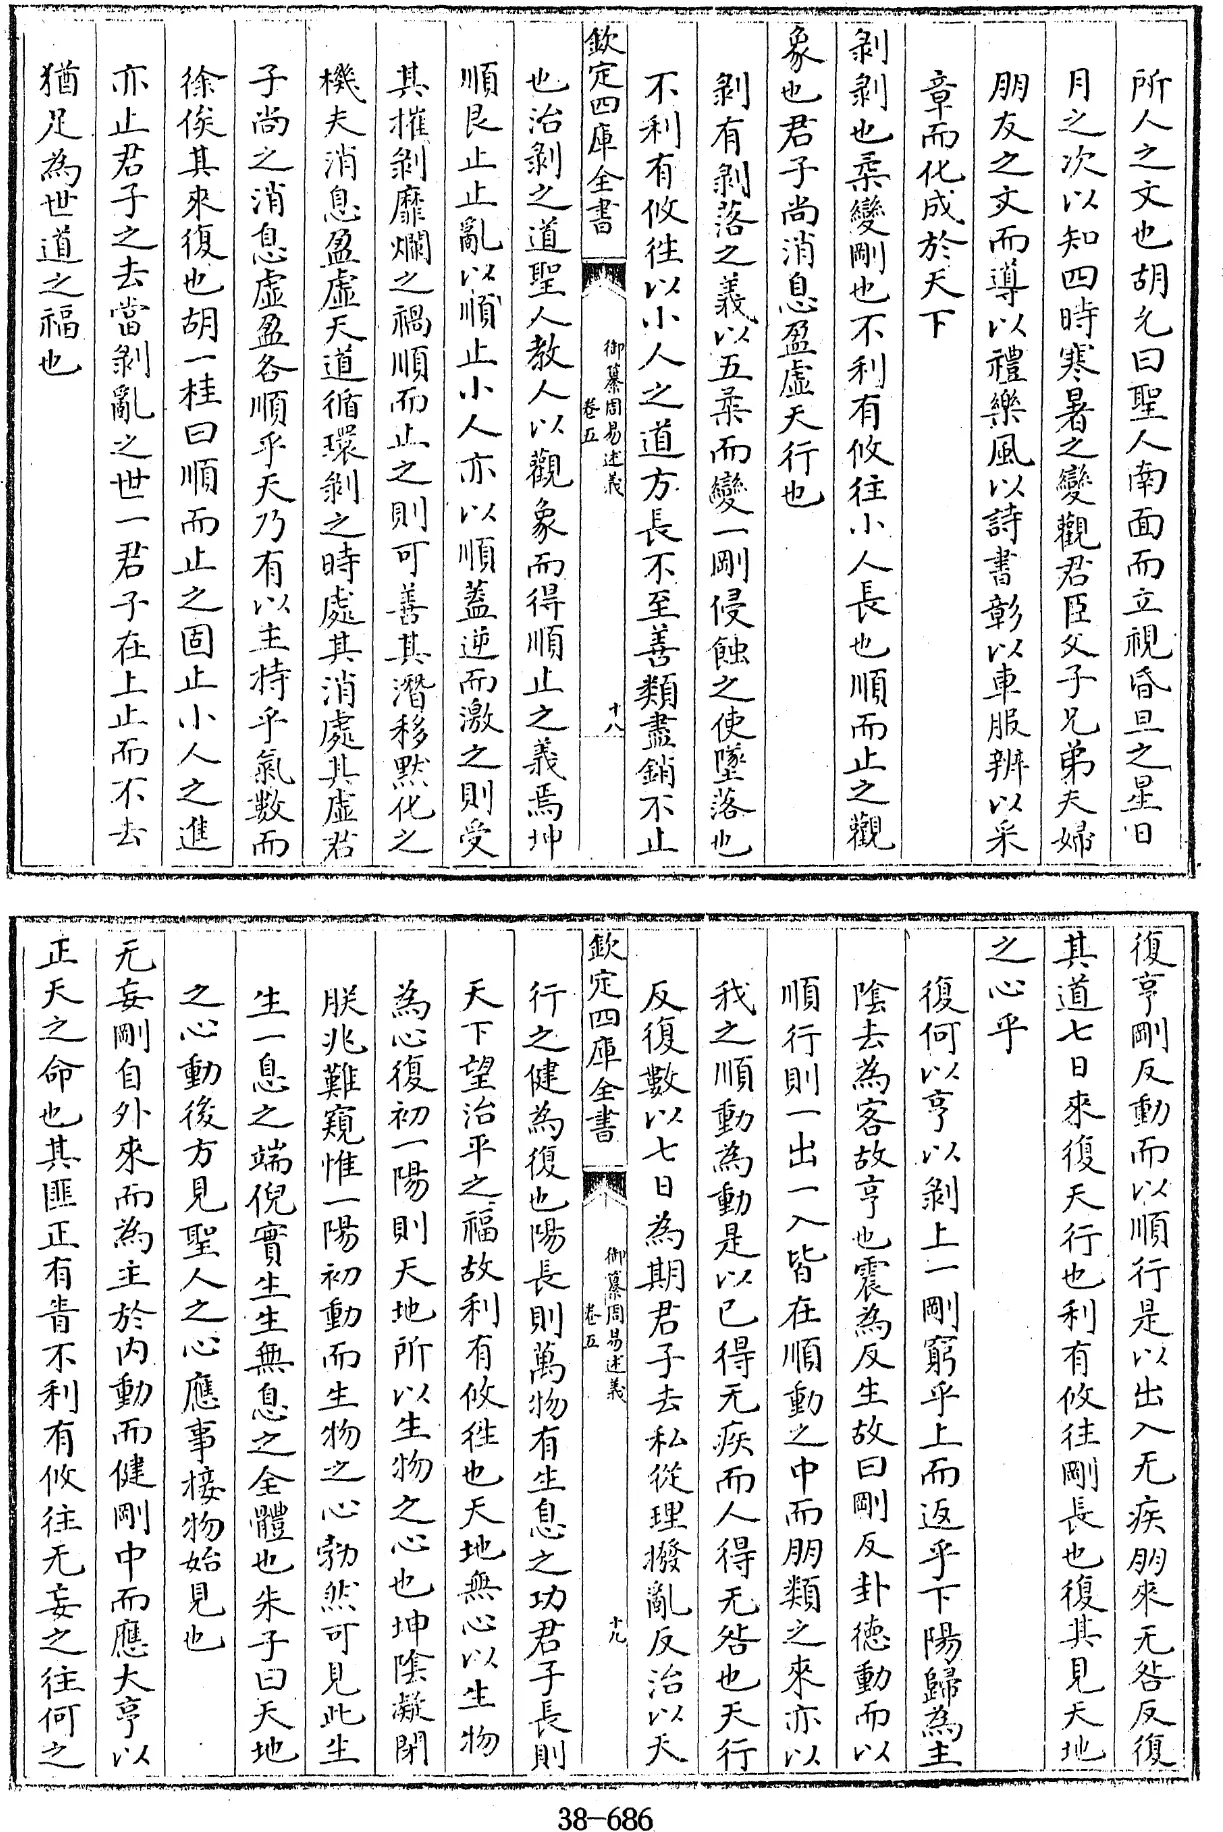 所人之文也胡允曰聖人南面而立視昏旦之星日
月之次以知四時寒暑之變觀君臣父子兄弟夫婦
朋友之文而導以禮樂風以詩書彰以車服辨以采
章而化成於天下
剝剝也柔變剛也不利有攸往小人長也順而止之觀
象也君子尚消息盈虛天行也
剝有剝落之義以五柔而變一剛侵蝕之使墜落也
不利有攸往以小人之道方長不至善類盡銷不止
欽定四庫全書
御纂周易述義
卷五
十八
也治剝之道聖人教人以觀象而得順止之義焉坤
順艮止止亂以順止小人亦以順蓋逆而激之則受
其摧剝靡爛之禍順而止之則可善其潛移默化之
機夫消息盈虛天道循環剝之時處其消處其虛君
子尚之消息虛盈各順乎天乃有以主持乎氣數而
徐俟其來復也胡一桂曰順而止之固止小人之進
亦止君子之去當剝亂之世一君子在上止而不去
猶足為世道之福也
復亨剛反動而以順行是以出入无疾朋來无咎反復
其道七日來復天行也利有攸往剛長也復其見天地
之心乎
復何以亨以剝上一剛窮乎上而返乎下陽歸為主
陰去為客故亨也震為反生故曰剛反卦德動而以
順行則一出一入皆在順動之中而朋類之來亦以
我之順動為動是以已得无疾而人得无咎也天行
反復數以七日為期君子去私從理撥亂反治以天
欽定四庫全書
御纂周易述義
卷五
十九
行之健為復也陽長則萬物有生息之功君子長則
天下望治平之福故利有攸往也天地無心以生物
為心復初一陽則天地所以生物之心也坤陰凝閉
朕兆難窺惟一陽初動而生物之心勃然可見此生
生一息之端倪實生生無息之全體也朱子曰天地
之心動後方見聖人之心應事接物始見也
无妄剛自外來而為主於内動而健剛中而應大亨以
正天之命也其匪正有眚不利有攸往无妄之往何之
38-686